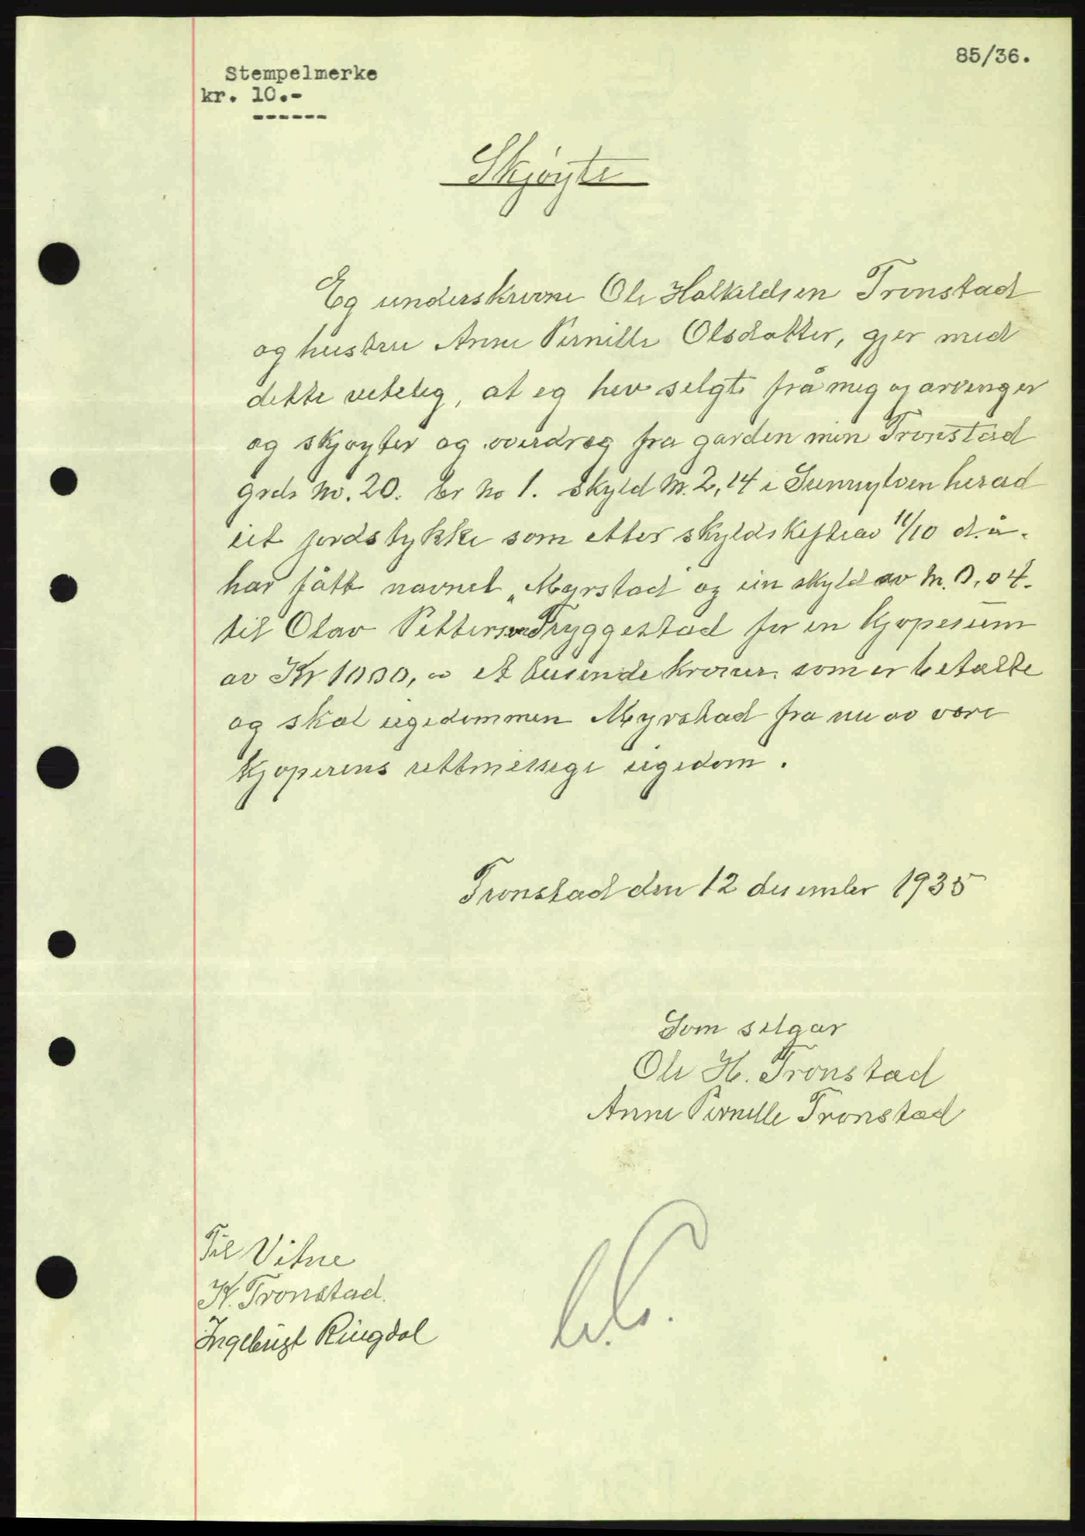 85/36.
Stempelmerke
kr. 10.-
------
Skjøyte
Eg underskrevne Ole Halkeldsen Tronstad
og hustru Anne Pernille Olsdatter, gjer med
dette viteleg, at eg hev selgt frå meg og arvinger
og skjøyter og overdreg fra garden min Tronstad
grds No. 20. br No 1. skyld M. 2,14 i Sunnylven herad
eit jordstykke som etter skyldskifteav 11/10 d.å.
har fått navnet "Myrstad" og ein skyld av M. 0,04.
til Olav Pettersen Tryggestad for en kjøpesum
av Kr 1000,00 et tusinde kroner som er betalte
og skal eigedommen Myrstad fra nu av vere
kjøperens rettmessige eigedom.
Tronstad den 12 desember 1935
Som selgar
Ole H. Tronstad
Anne Pernille Tronstad
Til Vitne
K. Tronstad.
Ingebrigt Ringdal